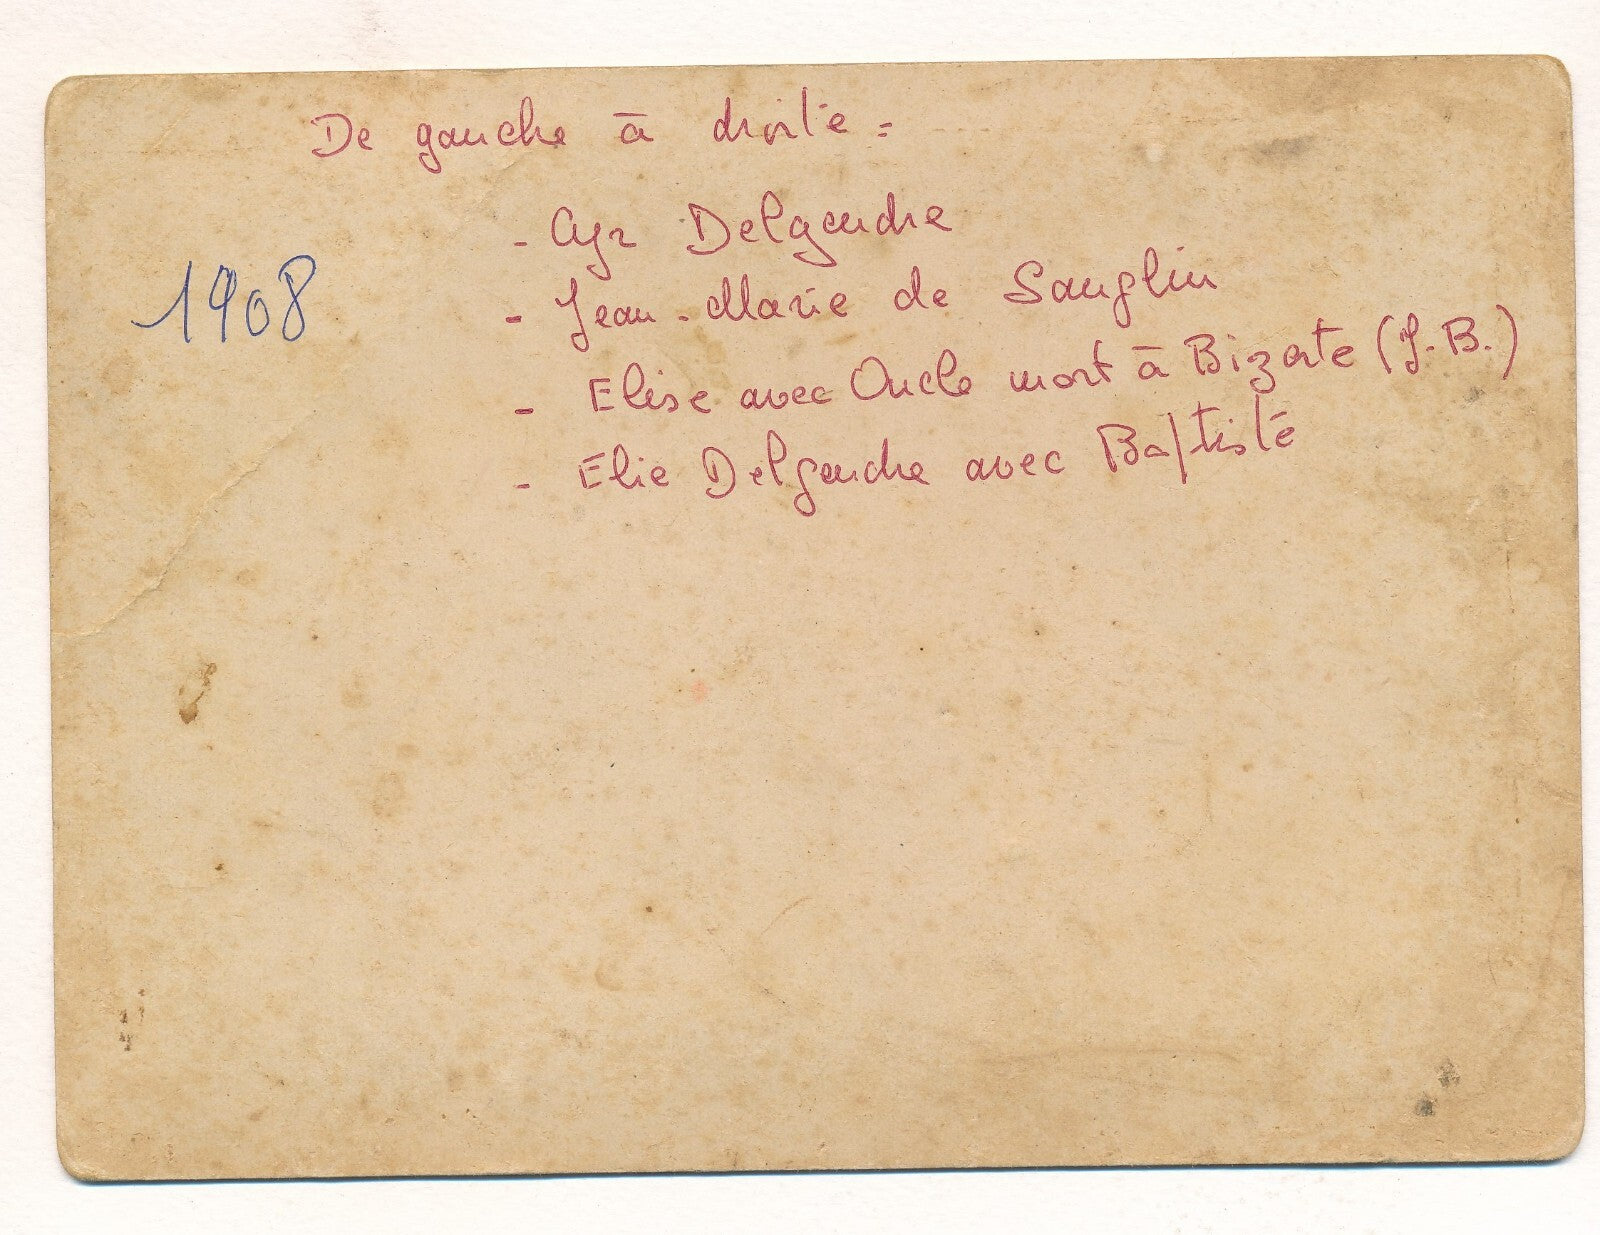 De gauche à droite =
- Cyr Delgendre
- Jean-Marie de Sanglin
1908
- Elise avec Oncle mort à Bizerte (J.B.)
- Elie Delgendre avec Baptiste